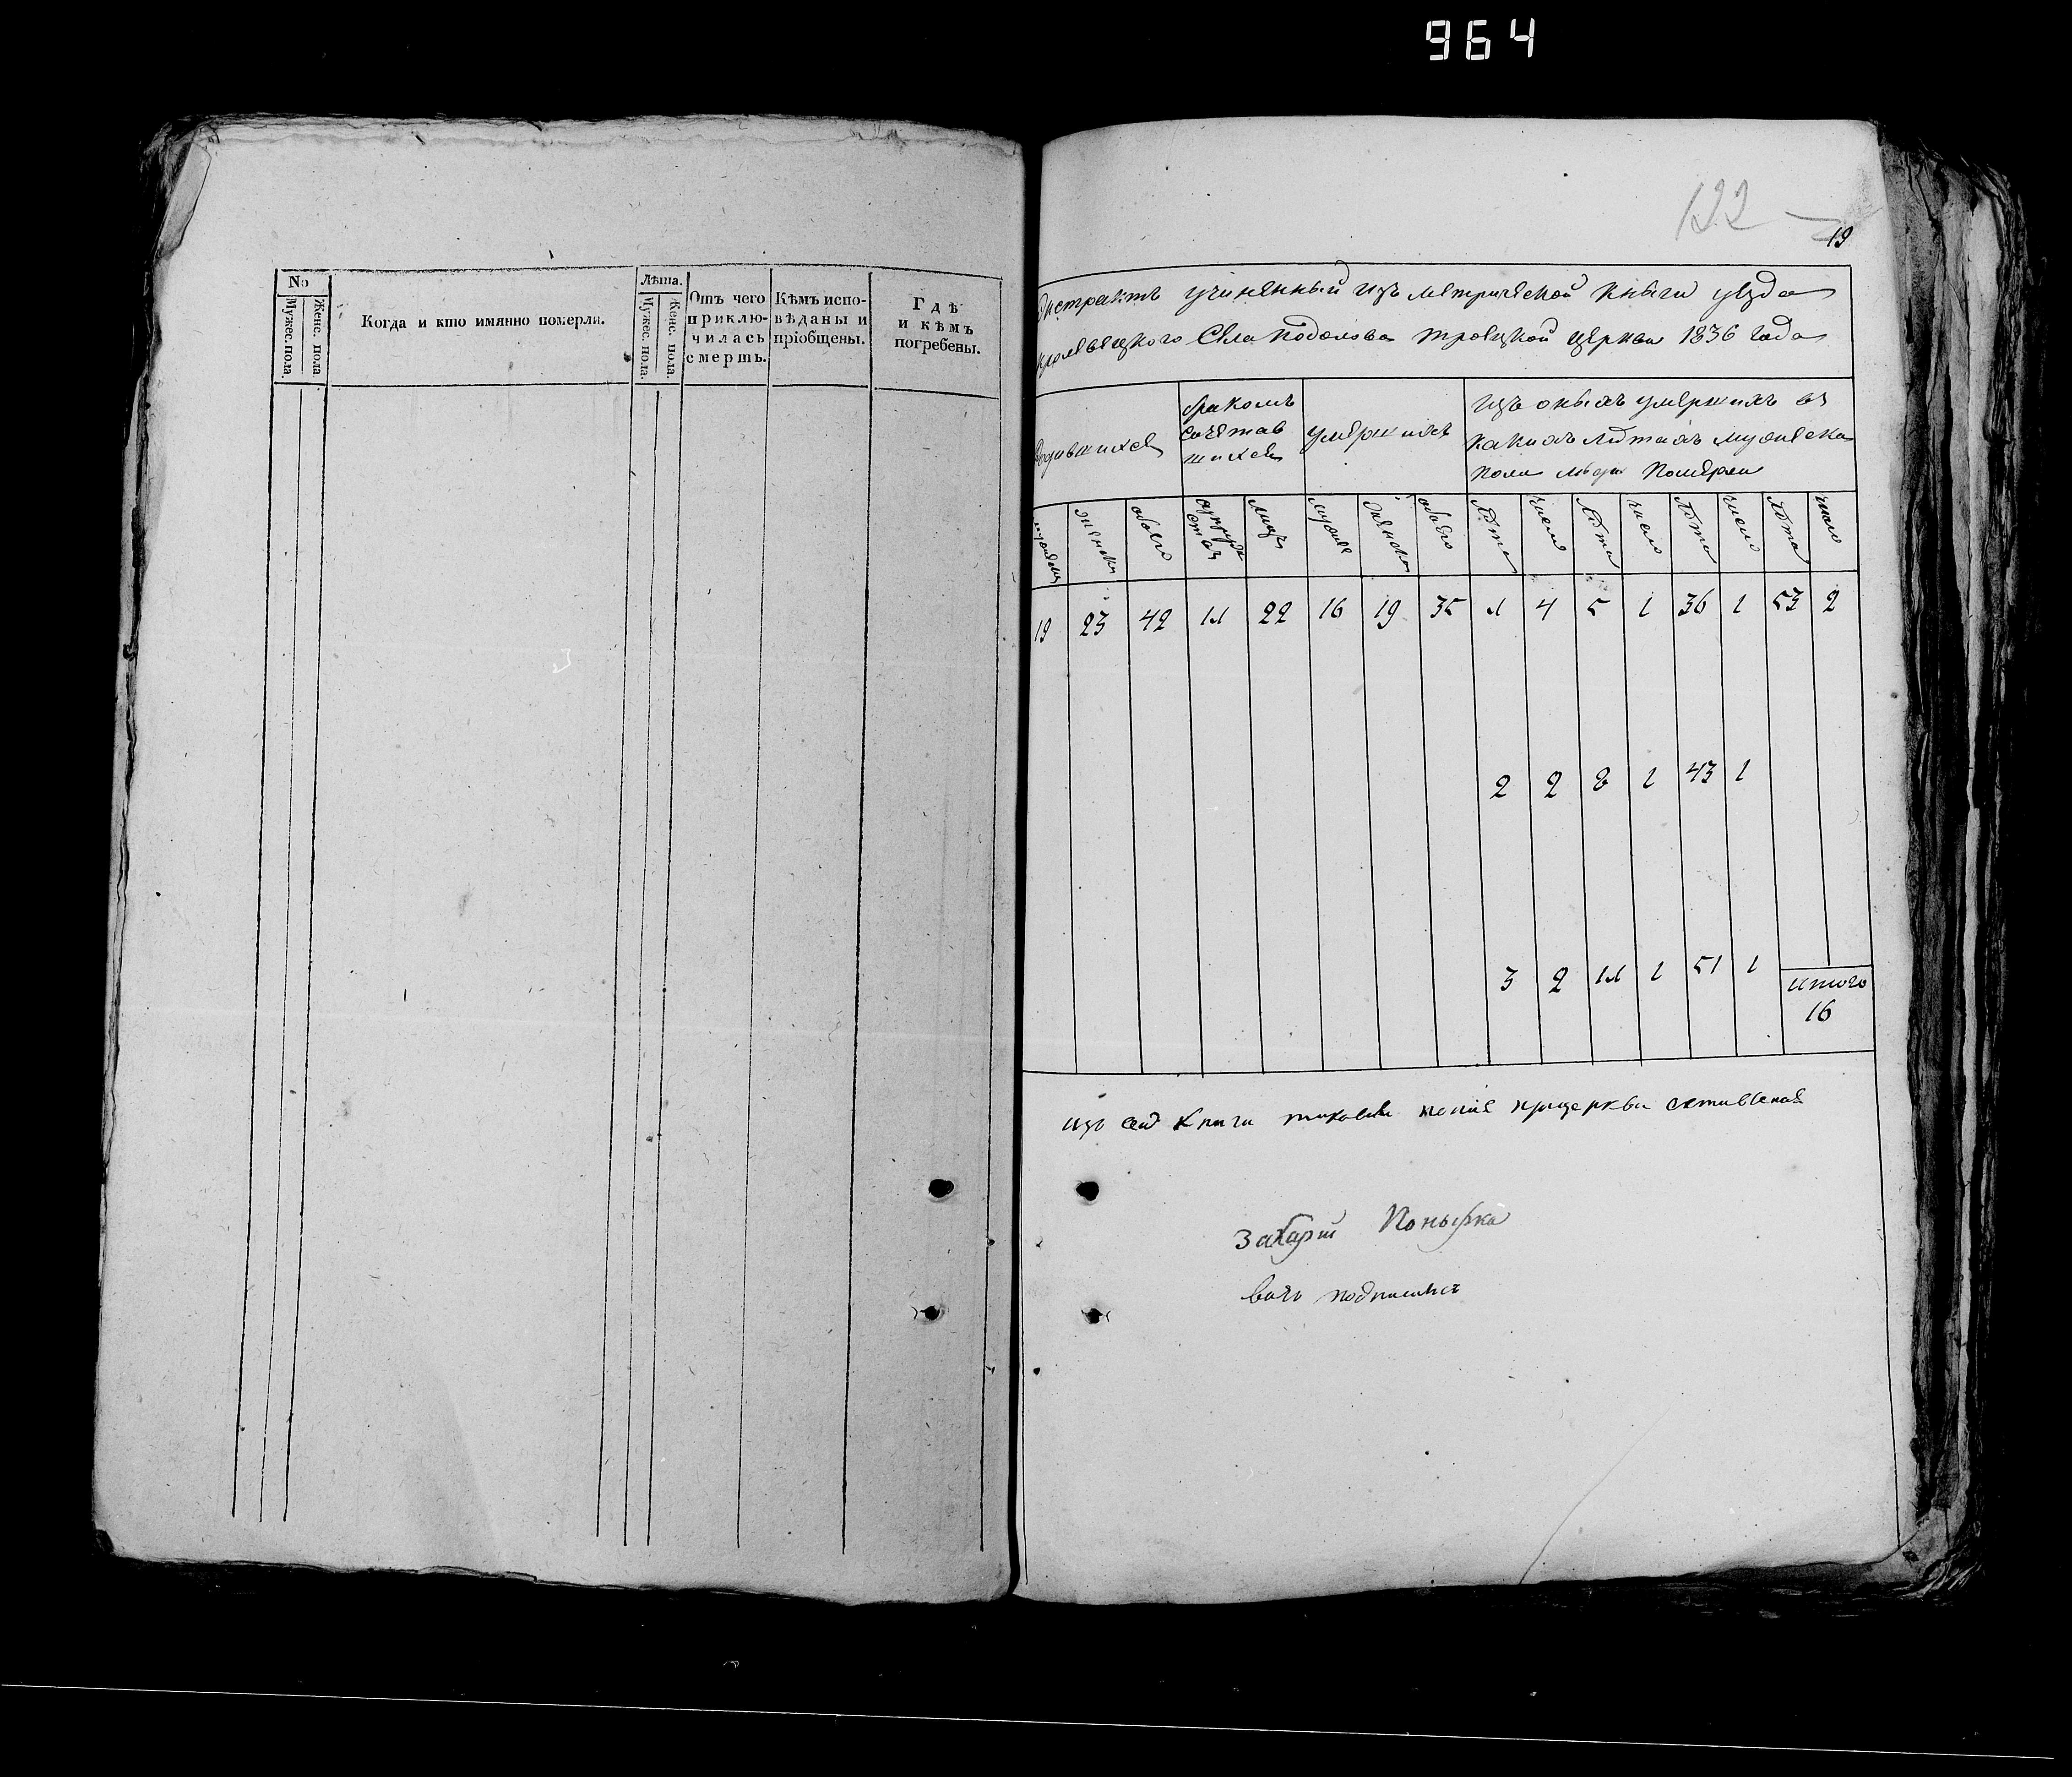 964
№
Мужес. пола.
Женс. пола
Когда и кто имянно померли.
Лѣта.
Мужес. пола.
Женс. пола.
Отъ чего
приклю-
чилась
смерть.
Кѣмъ испо-
вѣданы и
пріобщены.
Гдѣ
и кѣмъ
погребены.
122
19
Экстрактъ учиненный изъ метрической книги уезда
кролевецкого Села Подолова троецкой церкви 1836 года
Родившихся
браком
сочетав
шихся
умершихъ
изъ оныхъ умершихъ въ
какихъ летахъ мужеска
пола люди померли
мужеска женска обоего супруже
ства лицъ мужеска женска обоего Лета число Лета число Лета число Лета число
19 23 42 11 22 16 19 35 1 4 5 1 36 1 53 2
2 2 8 1 43 1
3 2 11 1 51 1
итого
16
изъ сей книги такова копия прицеркви оставленая
Захарий Понырка
подписалсъ